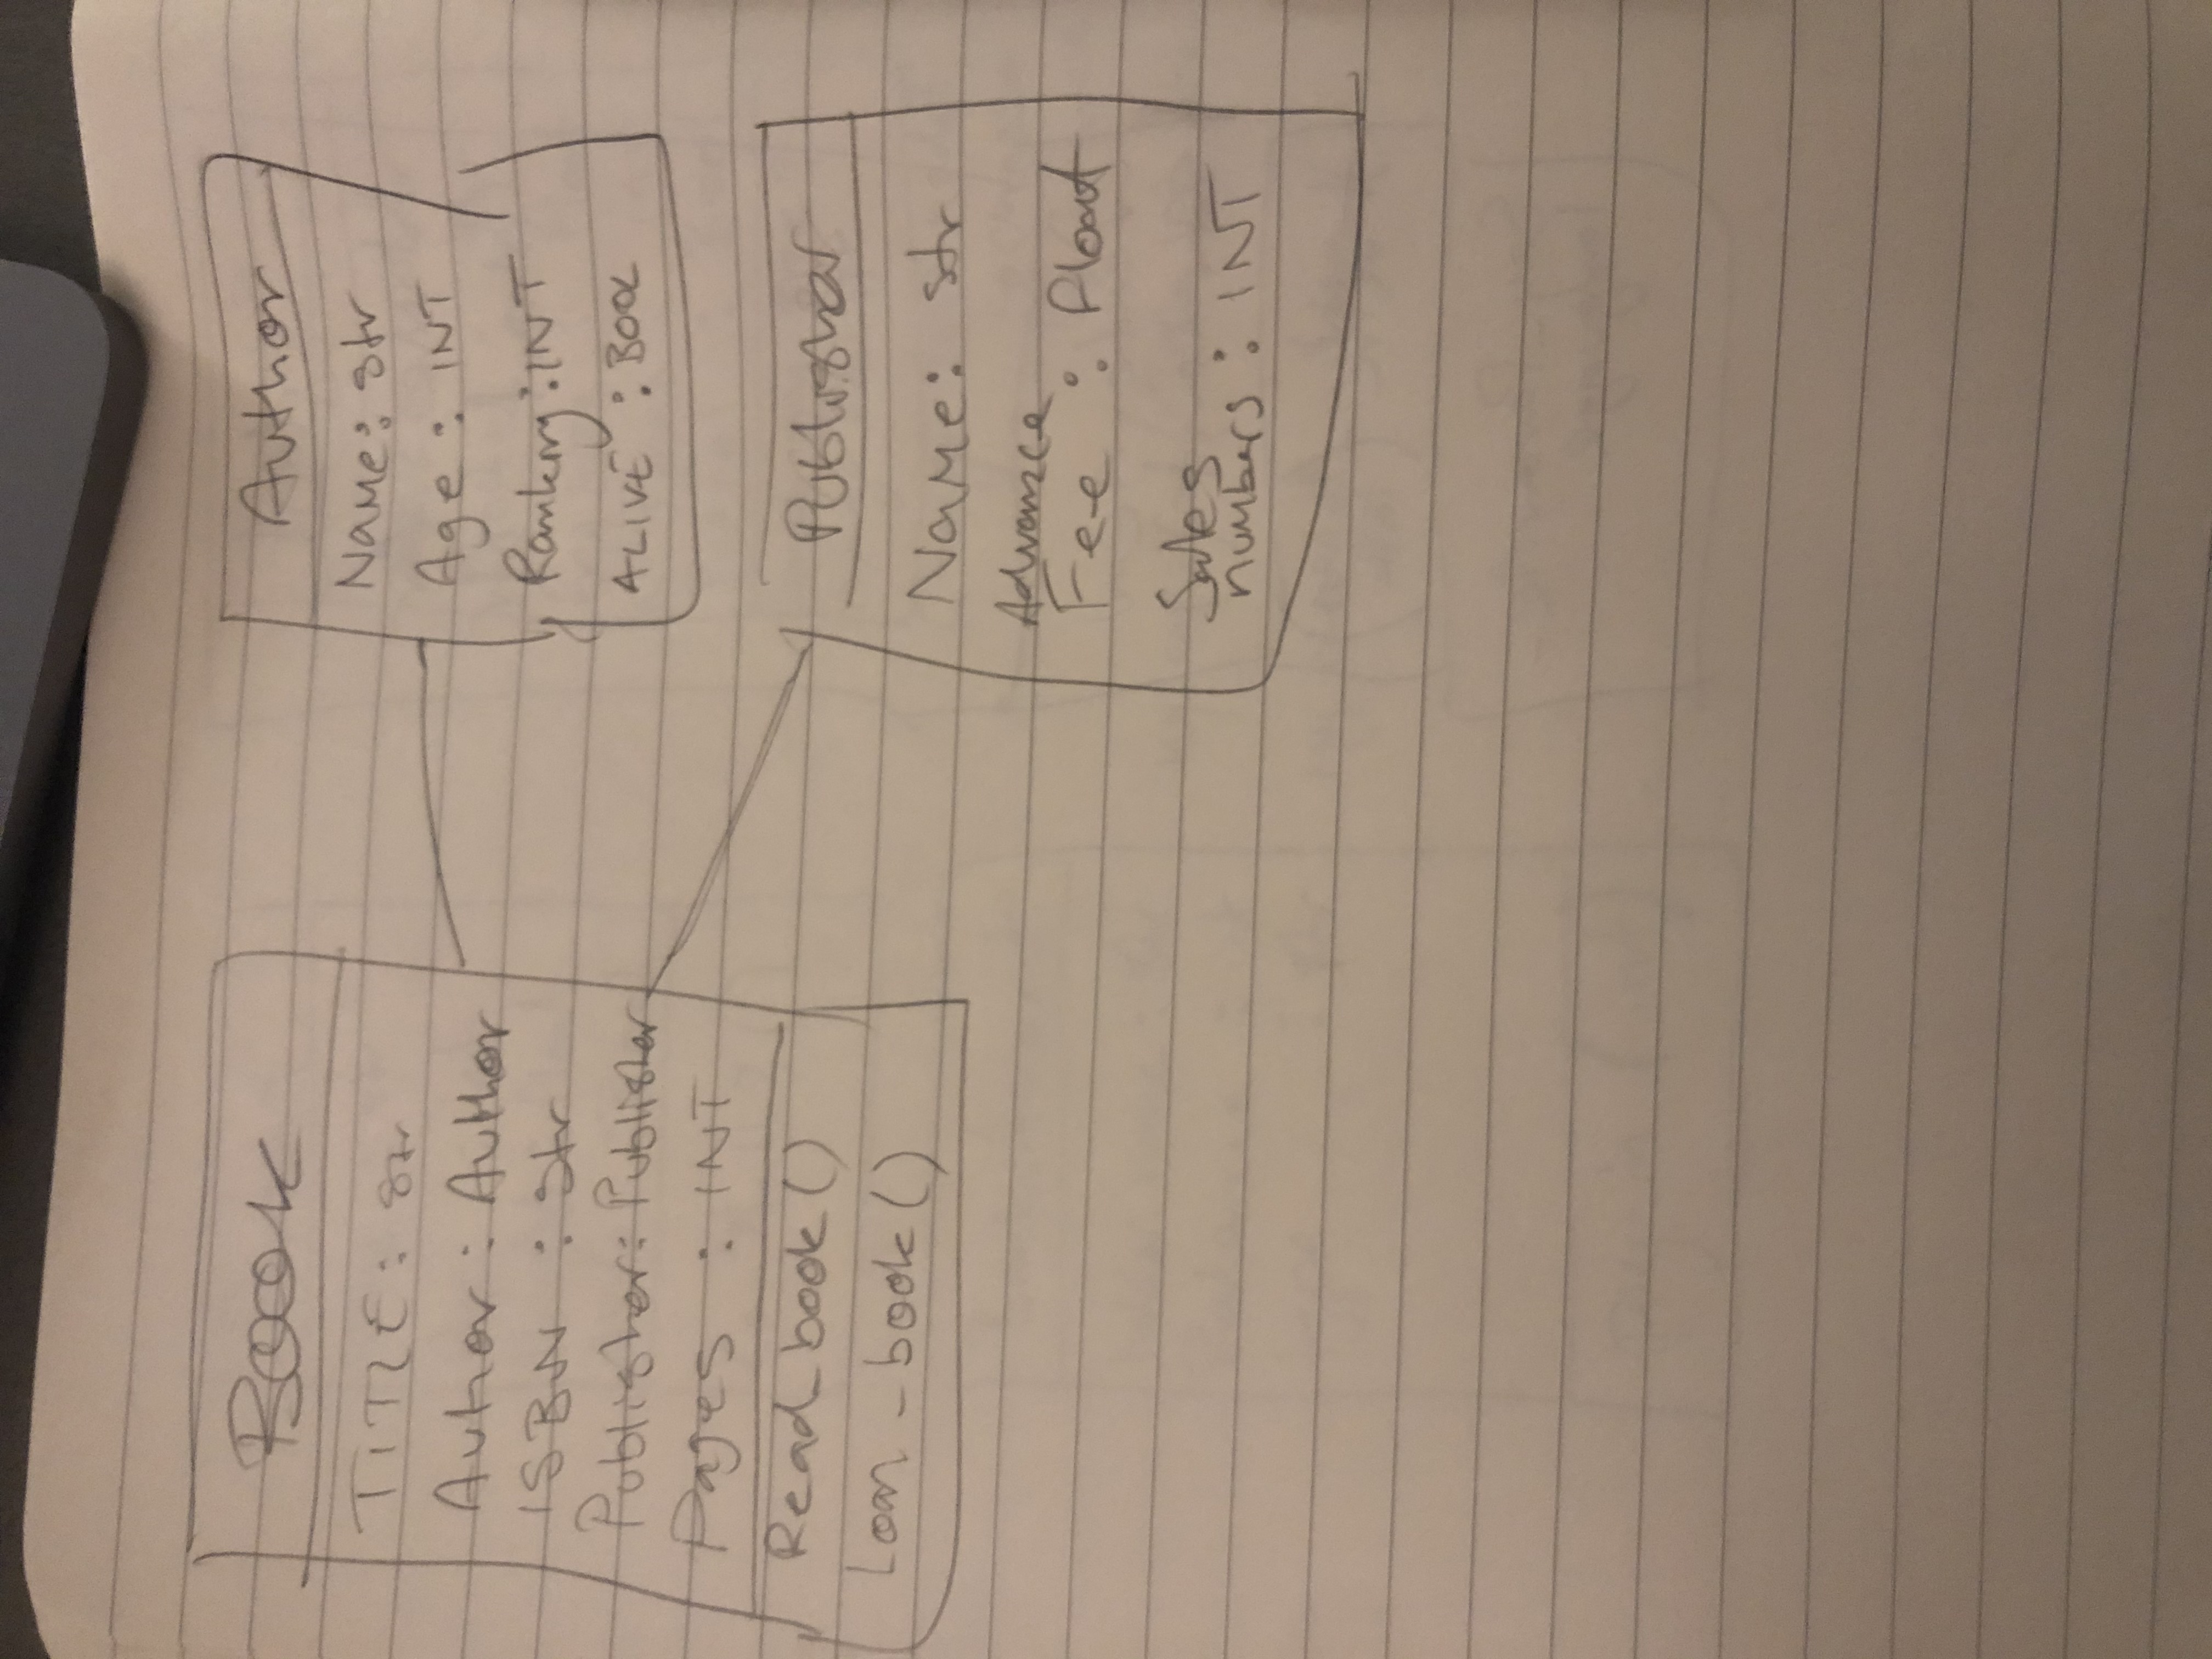 Book
TITLE: str
Author: Author
ISBN : str
Publisher: Publisher
Pages : INT
Read_book()
Loan_book()
Author
Name: str
Age : INT
Ranking: INT
ALIVE : BOOL
Publisher
Name: str
Advance
Fee : float
Sales
numbers : INT